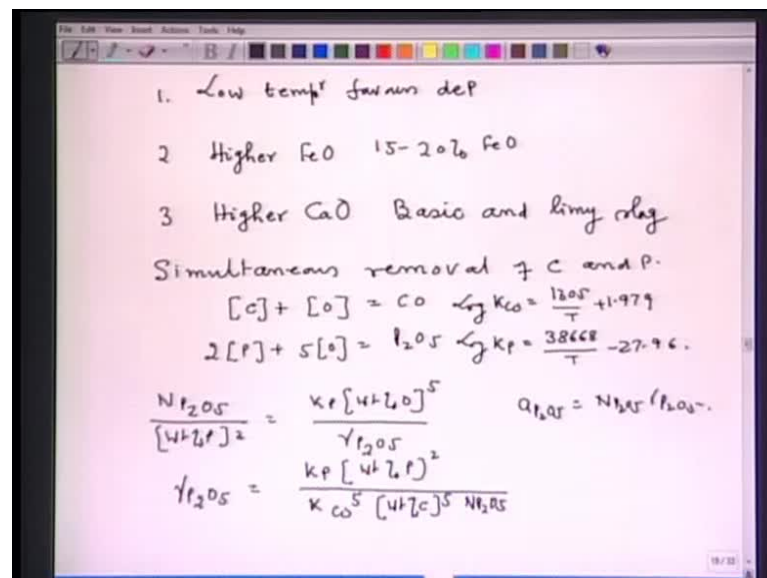 File Edit View Insert Actions Tools Help
B I
1. Low temp^r favours deP
2 Higher FeO 15-20% FeO
3 Higher CaO Basic and limy slag
Simultaneous removal of C and P.
[C] + [O] = CO log K_CO = 1305/T + 1.979
2[P] + 5[O] = P2O5 log KP = 38668/T - 27.96.
N_P2O5 / [wt%P]^2 = KP [wt%O]^5 / γ_P2O5 a_P2O5 = N_P2O5 γ_P2O5.
γ_P2O5 = KP [wt%P]^2 / K_CO^5 [wt%C]^5 N_P2O5
19/33